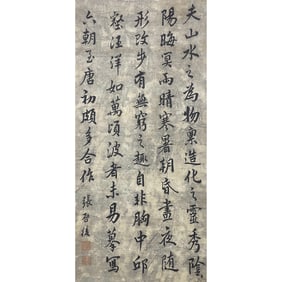 夫山水之為物稟造化之靈秀陰
陽晦冥雨晴寒暑朝昏晝夜隨
形改步有無窮之趣自非胸中邱
壑汪洋如萬頃波者未易摹寫
六朝至唐初頗多合作 張